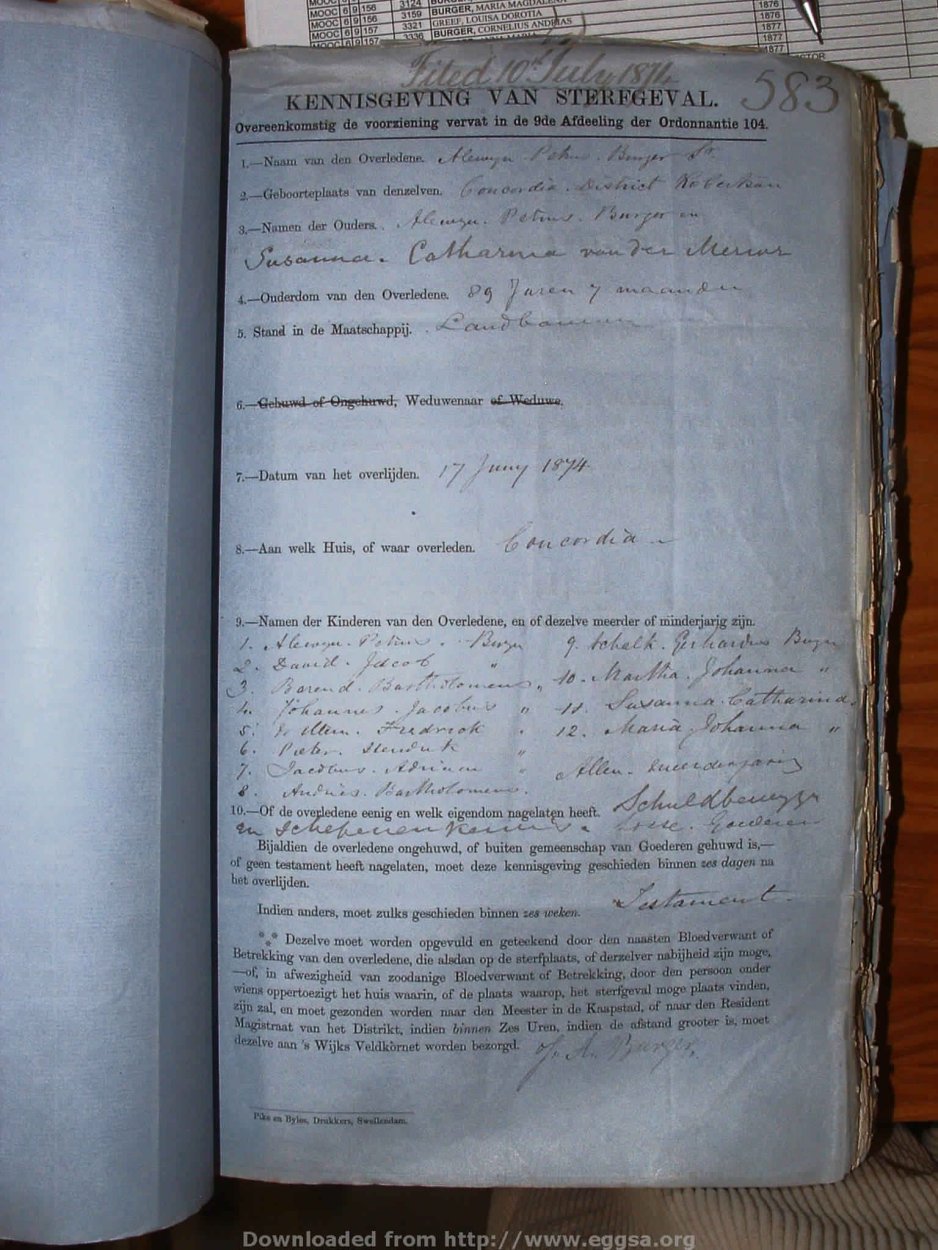 MOOC 6 9 156 3124 BURGER, MARIA MAGDALENA 1876
MOOC 6 9 156 3159 GREEF, LOUISA DOROTIA 1876
MOOC 6 9 156 3321 BURGER, CORNELIUS ANDRIAS 1877
MOOC 6 9 157 3336 1877
Filed 10th July 1874
583
KENNISGEVING VAN STERFGEVAL.
Overeenkomstig de voorziening vervat in de 9de Afdeeling der Ordonnantie 104.
1.—Naam van den Overledene. Alewyn Petrus Burger Sr.
2.—Geboorteplaats van denzelven. Concordia District Robertson
3.—Namen der Ouders. Alewyn Petrus Burger en
Susanna Catharina van der Merwe
4.—Ouderdom van den Overledene. 89 Jaren 7 maanden
5. Stand in de Maatschappij. Landbouwer
6.—Gehuwd of Ongehuwd, Weduwenaar of Weduwe.
7.—Datum van het overlijden. 17 Juny 1874
8.—Aan welk Huis, of waar overleden. Concordia
9.—Namen der Kinderen van den Overledene, en of dezelve meerder of minderjarig zijn.
1. Alewyn Petrus Burger 9. Schalk Gerhardus Burger
2. David Jacob " 10. Martha Johanna "
3. Barend Bartholomeus " 11. Susanna Catharina
4. Johannes Jacobus " 12. Maria Johanna "
5. Willem Fredrick "
6. Pieter Hendrik "
7. Jacobus Adriaan " Allen meerderjarig
8. Andries Bartholomeus
10.—Of de overledene eenig en welk eigendom nagelaten heeft. Schuldbewyze
en Schepenenkennis Losse Goederen
Bijaldien de overledene ongehuwd, of buiten gemeenschap van Goederen gehuwd is,—
of geen testament heeft nagelaten, moet deze kennisgeving geschieden binnen zes dagen na
het overlijden.
Testament
Indien anders, moet zulks geschieden binnen zes weken.
*** Dezelve moet worden opgevuld en geteekend door den naasten Bloedverwant of
Betrekking van den overledene, die alsdan op de sterfplaats, of derzelver nabijheid zijn moge,
—of, in afwezigheid van zoodanige Bloedverwant of Betrekking, door den persoon onder
wiens oppertoezigt het huis waarin, of de plaats waarop, het sterfgeval moge plaats vinden,
zijn zal, en moet gezonden worden naar den Meester in de Kaapstad, of naar den Resident
Magistraat van het Distrikt, indien binnen Zes Uren, indien de afstand grooter is, moet
dezelve aan 's Wijks Veldkornet worden bezorgd. Burger
Pike en Byles, Drukkers, Swellendam.
Downloaded from http://www.eggsa.org